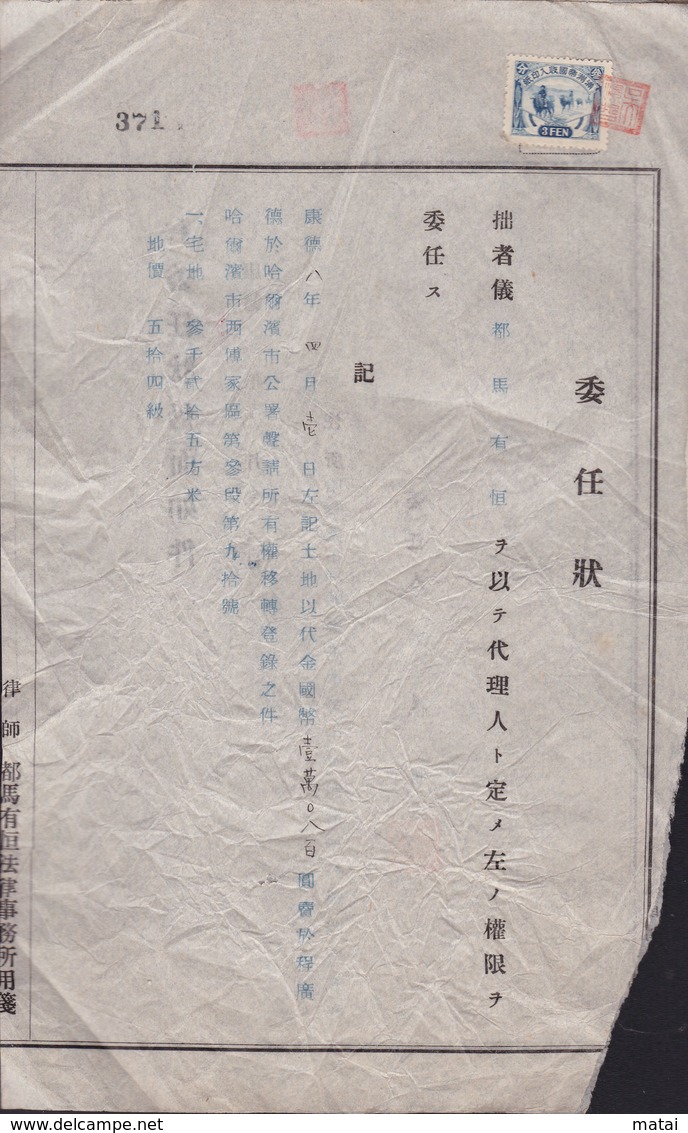 371
滿洲帝國收入印紙
分
3 FEN
委任狀
拙者儀都馬有恒ヲ以テ代理人ト定メ左ノ權限ヲ
委任ス
記
康德八年四月壹日左記土地以代金國幣壹萬〇八百圓賣於程廣
德於哈爾濱市公署聲請所有權移轉登錄之件
哈爾濱市西傅家區第參段第九拾號
一、宅地 參千貳拾五方米
地價 五拾四級
律師 都馬有恒法律事務所用箋
delcampe.net
matai